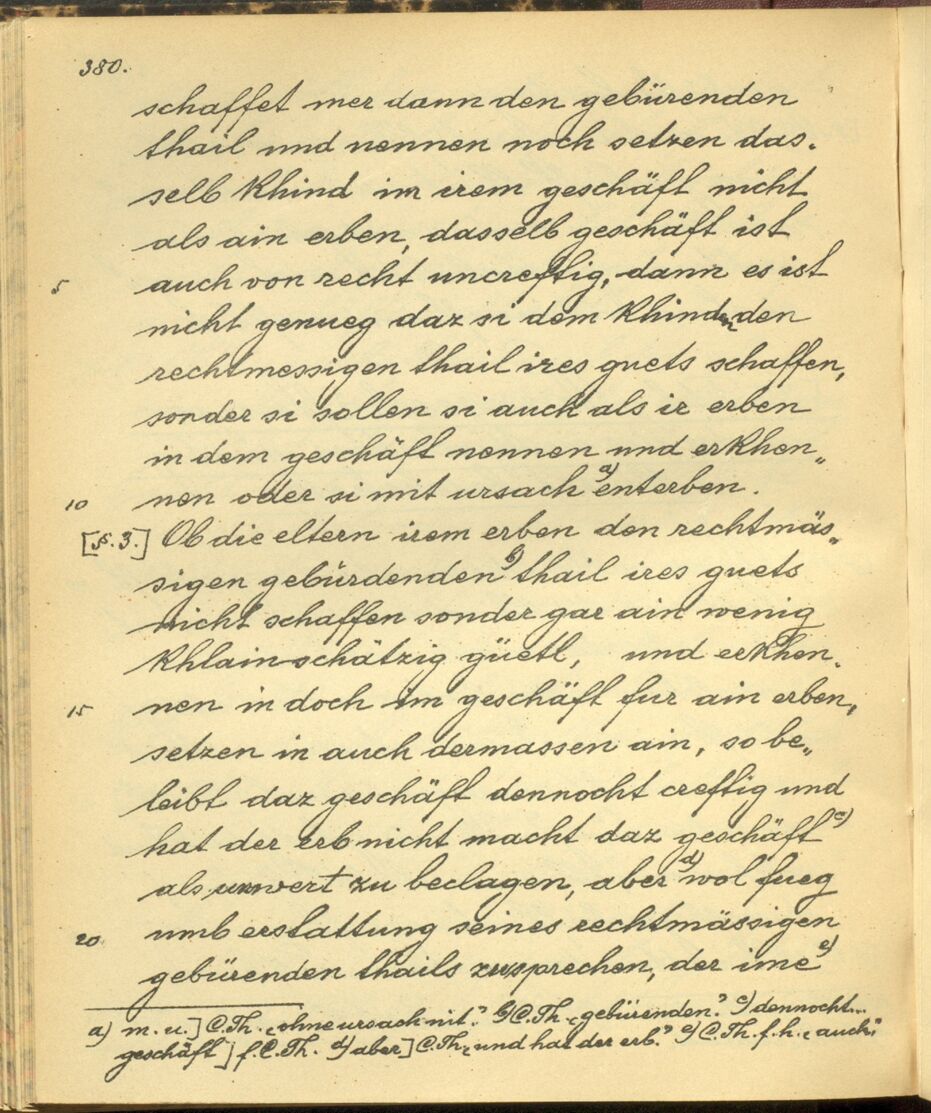 380.
schaffet mer dann den gebürenden
thail und nennen noch setzen das„
selb Khind im irem geschäft nicht
als ain erben, dasselb geschäft ist
5 auch von recht uncreftig, dann es ist
nicht genueg daz si dem Khind den
rechtmessigen thail ires guets schaffen,
sonder si sollen si auch als ir erben
in dem geschäft nennen und erkhen„
10 nen oder si mit ursach a) enterben.
[§. 3.] Ob die eltern irem erben den rechtmäs„
sigen gebürdenden b) thail ires guets
nicht schaffen sonder gar ain wenig
Khlainschätzig güetl, und erkhen„
15 nen in doch im geschäft fur ain erben,
setzen in auch dermassen ain, so be„
leibt daz geschäft dennocht creftig und
hat der erb nicht macht daz geschäft c)
als unwert zu beclagen, aber d) wol fueg
20 umb erstattung seines rechtmässigen
gebürenden thails zusprechen, der ime e)
a) m. u.] C.Th. „ohne ursach nit". b) C.Th. „gebürenden". c) dennocht...
geschäft] f. C.Th. d) aber] C.Th. „und hat der erb". e) C.Th. f. h. „auch"